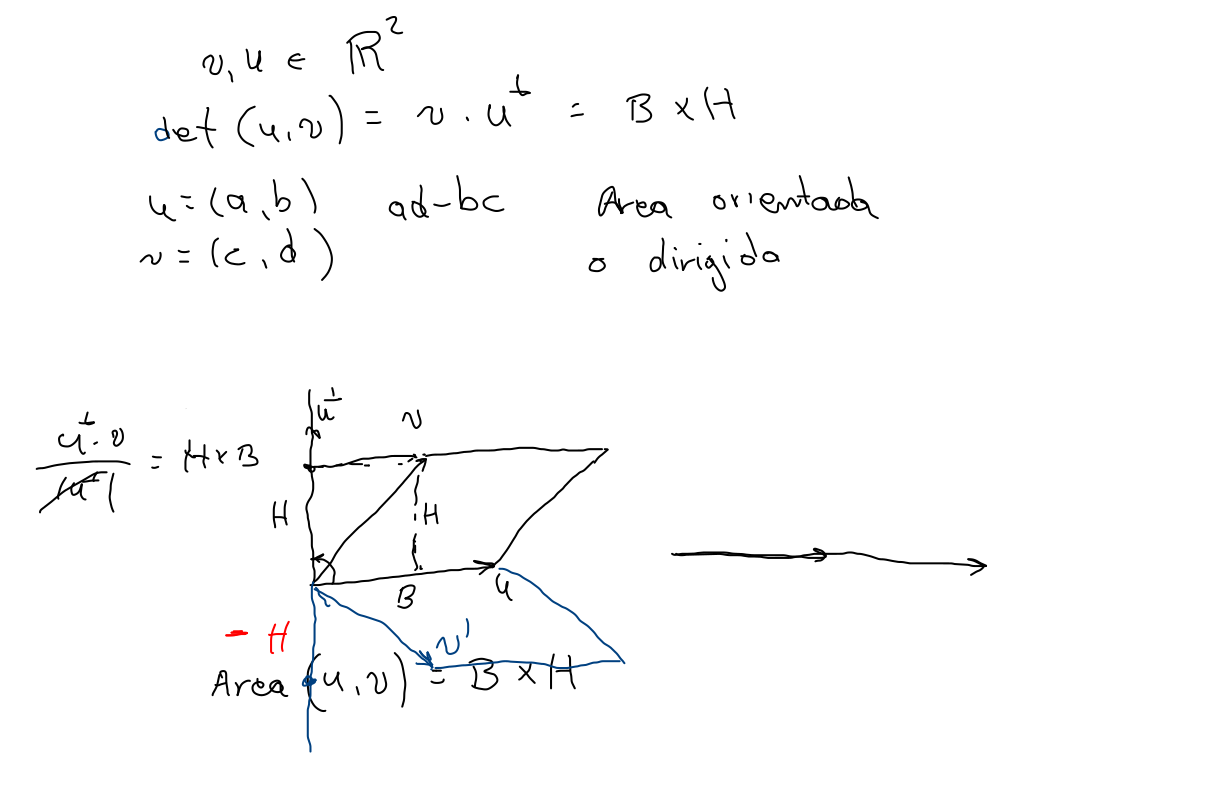 v, u ∈ ℝ²
det (u, v) = v · u^⊥ = B × H
u = (a, b) ad - bc Area orientada
v = (c, d) o dirigida
u^⊥ v
u^⊥ · v / |u^⊥| = H × B
H H
B u
- H v'
Area (u, v) = B × H